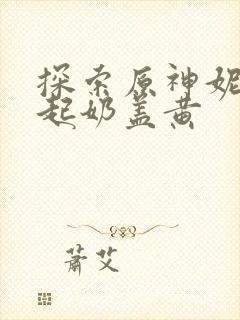 探索原神妮
起奶盖黄
萧艾